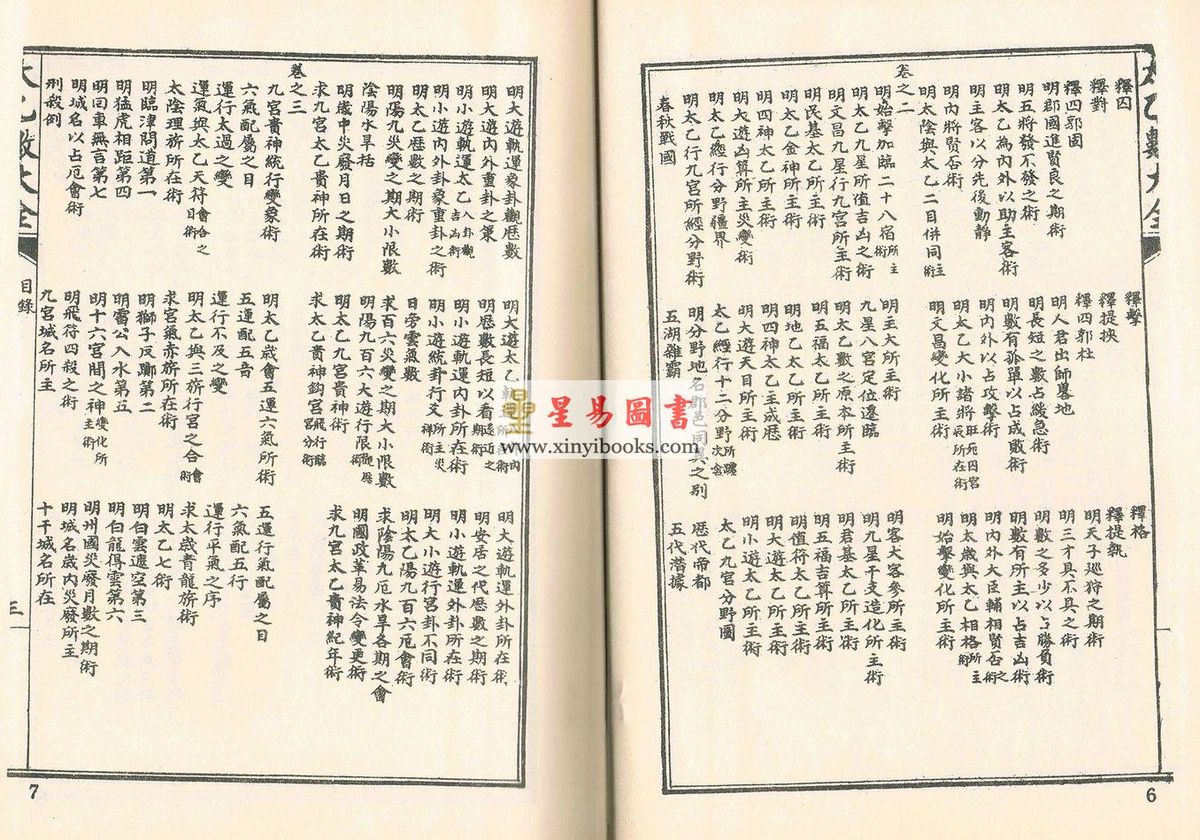 太乙數大全
釋囚
釋擊
釋格
釋對
釋提挾
釋提執
釋四郭固
釋四郭杜
明天子巡狩之期術
明郡國進賢良之期術
明人君出師畧地
明三才具不具之術
明五將發不發之術
明長短之數占緩急術
明數之多少以占勝負術
明太乙為內外以助主客術
明數有孤單以占成敗術
明數有所主以占吉凶術
明主客以分先後動靜
明內外以占攻擊術
明內外大臣輔相賢否之術
明內將賢否術
明太乙大小諸將
明太歲與太乙相格所主術
明太陰與太乙二目併同所主術
明文昌變化所主術
明始擊變化所主術
卷之二
明始擊加臨二十八宿所主術
明主大所主術
明客大客參所主術
明太乙九星所值吉凶之術
九星八宮定位遶臨
明九星干支造化所主術
明文昌九星行九宮所主術
明太乙數之原本所主術
明君基太乙所主術
明民基太乙所主術
明五福太乙所主術
明五福吉算所主術
明太乙金神所主術
明地乙太乙所主術
明值符太乙所主術
明四神太乙所主術
明四神太乙主成歷
明大遊太乙所主術
明大遊凶算所主災變術
明大遊天目所主術
明小遊太乙所主術
明太乙經行分野疆界
太乙經行十二分野
太乙九宮分野圖
明太乙行九宮所經分野術
明分野地名郡邑同異之別
歷代帝都
春秋戰國
五湖雜霸
五代潛據
6
明大遊軌運象卦觀歷數
明大遊太乙
明大遊軌運外卦所在術
明大遊內外重卦之策
明歷數長短以看遠近之期術
明安居之代歷數之期術
明小遊軌運太乙八卦觀吉凶術
明小遊軌運內卦所在術
明小遊軌運外卦所在術
明小遊內外卦象重卦之術
明小遊統卦行爻所主災祥術
明大小遊行宮卦不同術
明太乙歷數之期術
日旁雲氣數
明太乙陽九百六厄會術
明陽九災變之期大小限數
求百六災變之期大小限數
求陰陽九厄水旱各期之會
陰陽水旱括
明陽九百六大遊行限觀歷術
明國政革易法令變更術
明歲中災發月日之期術
明太乙九宮貴神術
求九宮太乙貴神紀年術
求九宮太乙貴神所在術
求太乙貴神鈎宮飛行臨宮分術
卷之三
九宮貴神統行變象術
明太乙歲會五運六氣所術
五運行氣配屬之目
六氣配屬之目
五運配五音
六氣配五行
運行太過之變
運行不及之變
運行平氣之序
運氣與太乙天符會合之日術
明太乙與三旂行宮之合會術
求太歲青龍旂術
太陰理旂所在術
求宮氣赤旂所在術
明太乙七術
明臨津問道第一
明獅子反躑第二
明白雲遮空第三
明猛虎相距第四
明雷公入水第五
明白龍得雲第六
明回車無言第七
明十六宮間之神變化所主術
明州國災發月數之期術
明城名以占厄會術
明飛符四殺之術
明城名歲內災發所主
刑殺例
九宮城名所主
十干城名所在
太乙數大全
目錄
三
7
星易圖書
www.xinyibooks.com